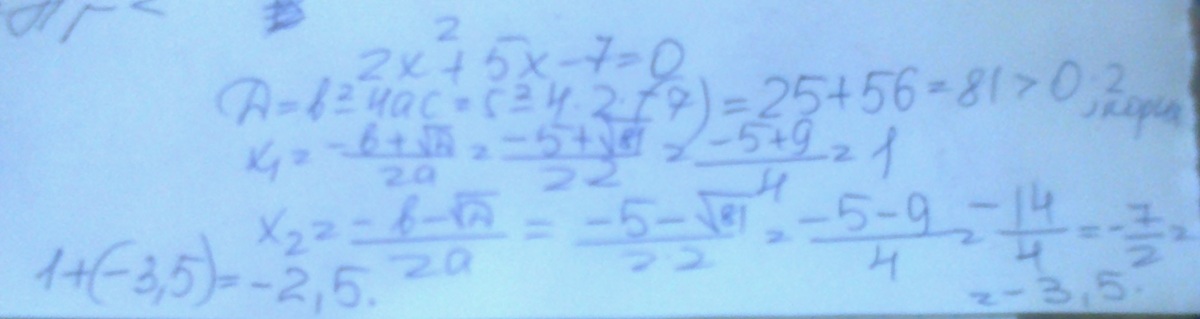 2x² + 5x - 7 = 0
D = b² - 4ac = 5² - 4·2·(-7) = 25 + 56 = 81 > 0; 2 корня
x₁ = (-b + √D)/2a = (-5 + √81)/2·2 = (-5 + 9)/4 = 1
x₂ = (-b - √D)/2a = (-5 - √81)/2·2 = (-5 - 9)/4 = -14/4 = -7/2 =
= -3,5.
1 + (-3,5) = -2,5.